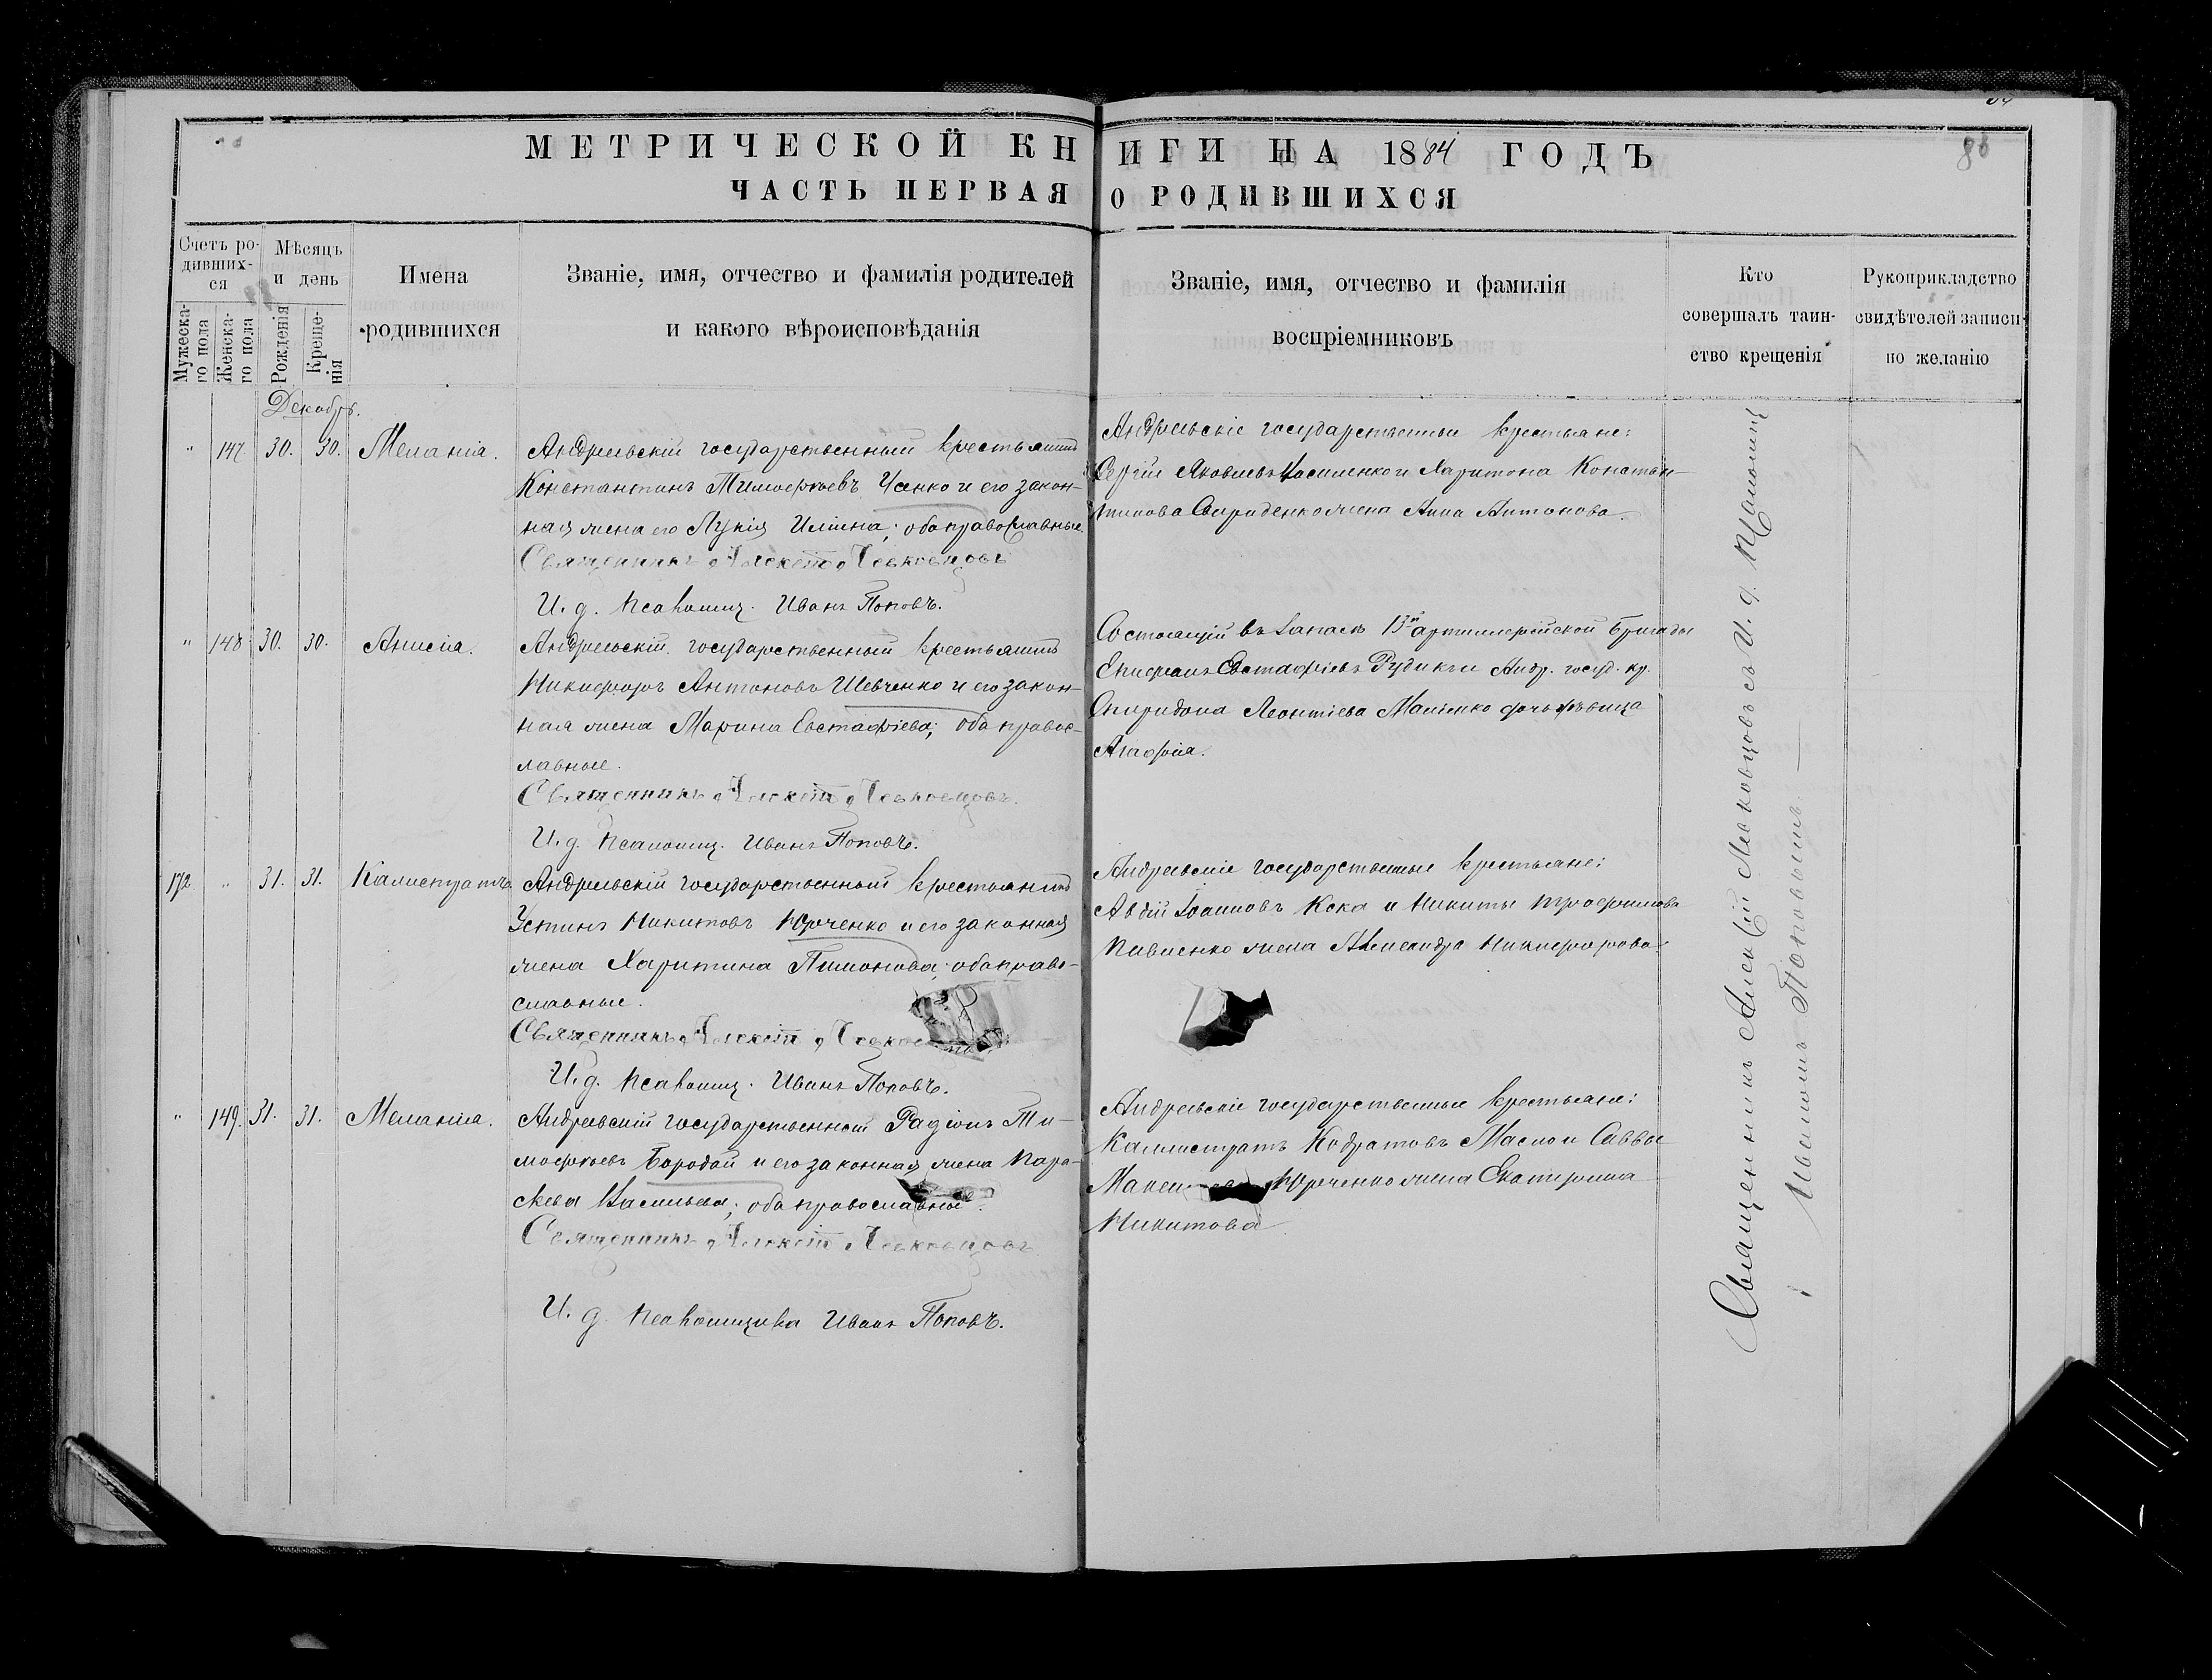 МЕТРИЧЕСКОЙ КНИГИ НА 1884 ГОДЪ
ЧАСТЬ ПЕРВАЯ О РОДИВШИХСЯ
Счетъ ро-
дивших-
ся
Мужеска-
го пола
Женска-
го пола
Мѣсяцъ
и день
Рожденія
Креще-
нія
Имена
родившихся
Званіе, имя, отчество и фамилія родителей
и какого вѣроисповѣданія
Званіе, имя, отчество и фамилія
воспріемниковъ
Кто
совершалъ таин-
ство крещенія
Рукоприкладство
свидѣтелей записи
по желанію
Декабрь.
" 147. 30. 30. Меланія.
Андреевскій государственный крестьянинъ
Константинъ Тимофѣевъ Чанко и его закон-
ная жена его Лукія Иліина; оба православные.
Священникъ Алексѣй
И. д. Псаломщ. Иванъ Поповъ.
Андреевскіе государственные крестьяне:
Сергій Яковлевъ Василенко и Харитона Констан-
тинова Свириденко жена Анна Антонова.
" 148 30. 30. Анисія.
Андреевскій государственный крестьянинъ
Никифоръ Антоновъ Шевченко и его закон-
ная жена Марина Евстафіева; оба правос-
лавные.
Священникъ Алексѣй
И. д. Псаломщ. Иванъ Поповъ.
Состоящій въ запасѣ 13й артиллерійской бригады
Епифанъ Евстафіевъ Рудикъ и Андр. госуд. кр.
Спиридона Леонтіева дочь дѣвица
Агафія.
172 " 31. 31. Калистратъ
Андреевскій государственный крестьянинъ
Устинъ Никитовъ Юрченко и его законная
жена Харитина Пимонова; оба право-
славные.
Священникъ Алексѣй
И. д. Псаломщ. Иванъ Поповъ.
Андреевскіе государственные крестьяне:
Авдій Іоанновъ Кека и Никиты Трофимова
Павленко жена Александра Никифорова.
" 149. 31. 31. Меланія.
Андреевскій государственный Радіонъ Ти-
мофѣевъ Бородай и его законная жена Пара-
скева Васильева; оба православные.
Священникъ Алексѣй
И. д. Псаломщика Иванъ Поповъ.
Андреевскіе государственные крестьяне:
Каллистратъ Кодратовъ Масло и Саввы
Юрченко жена Екатерина
Никитова
Священникъ Алексѣй съ И. д. Псаломщ
Иваномъ Поповымъ.